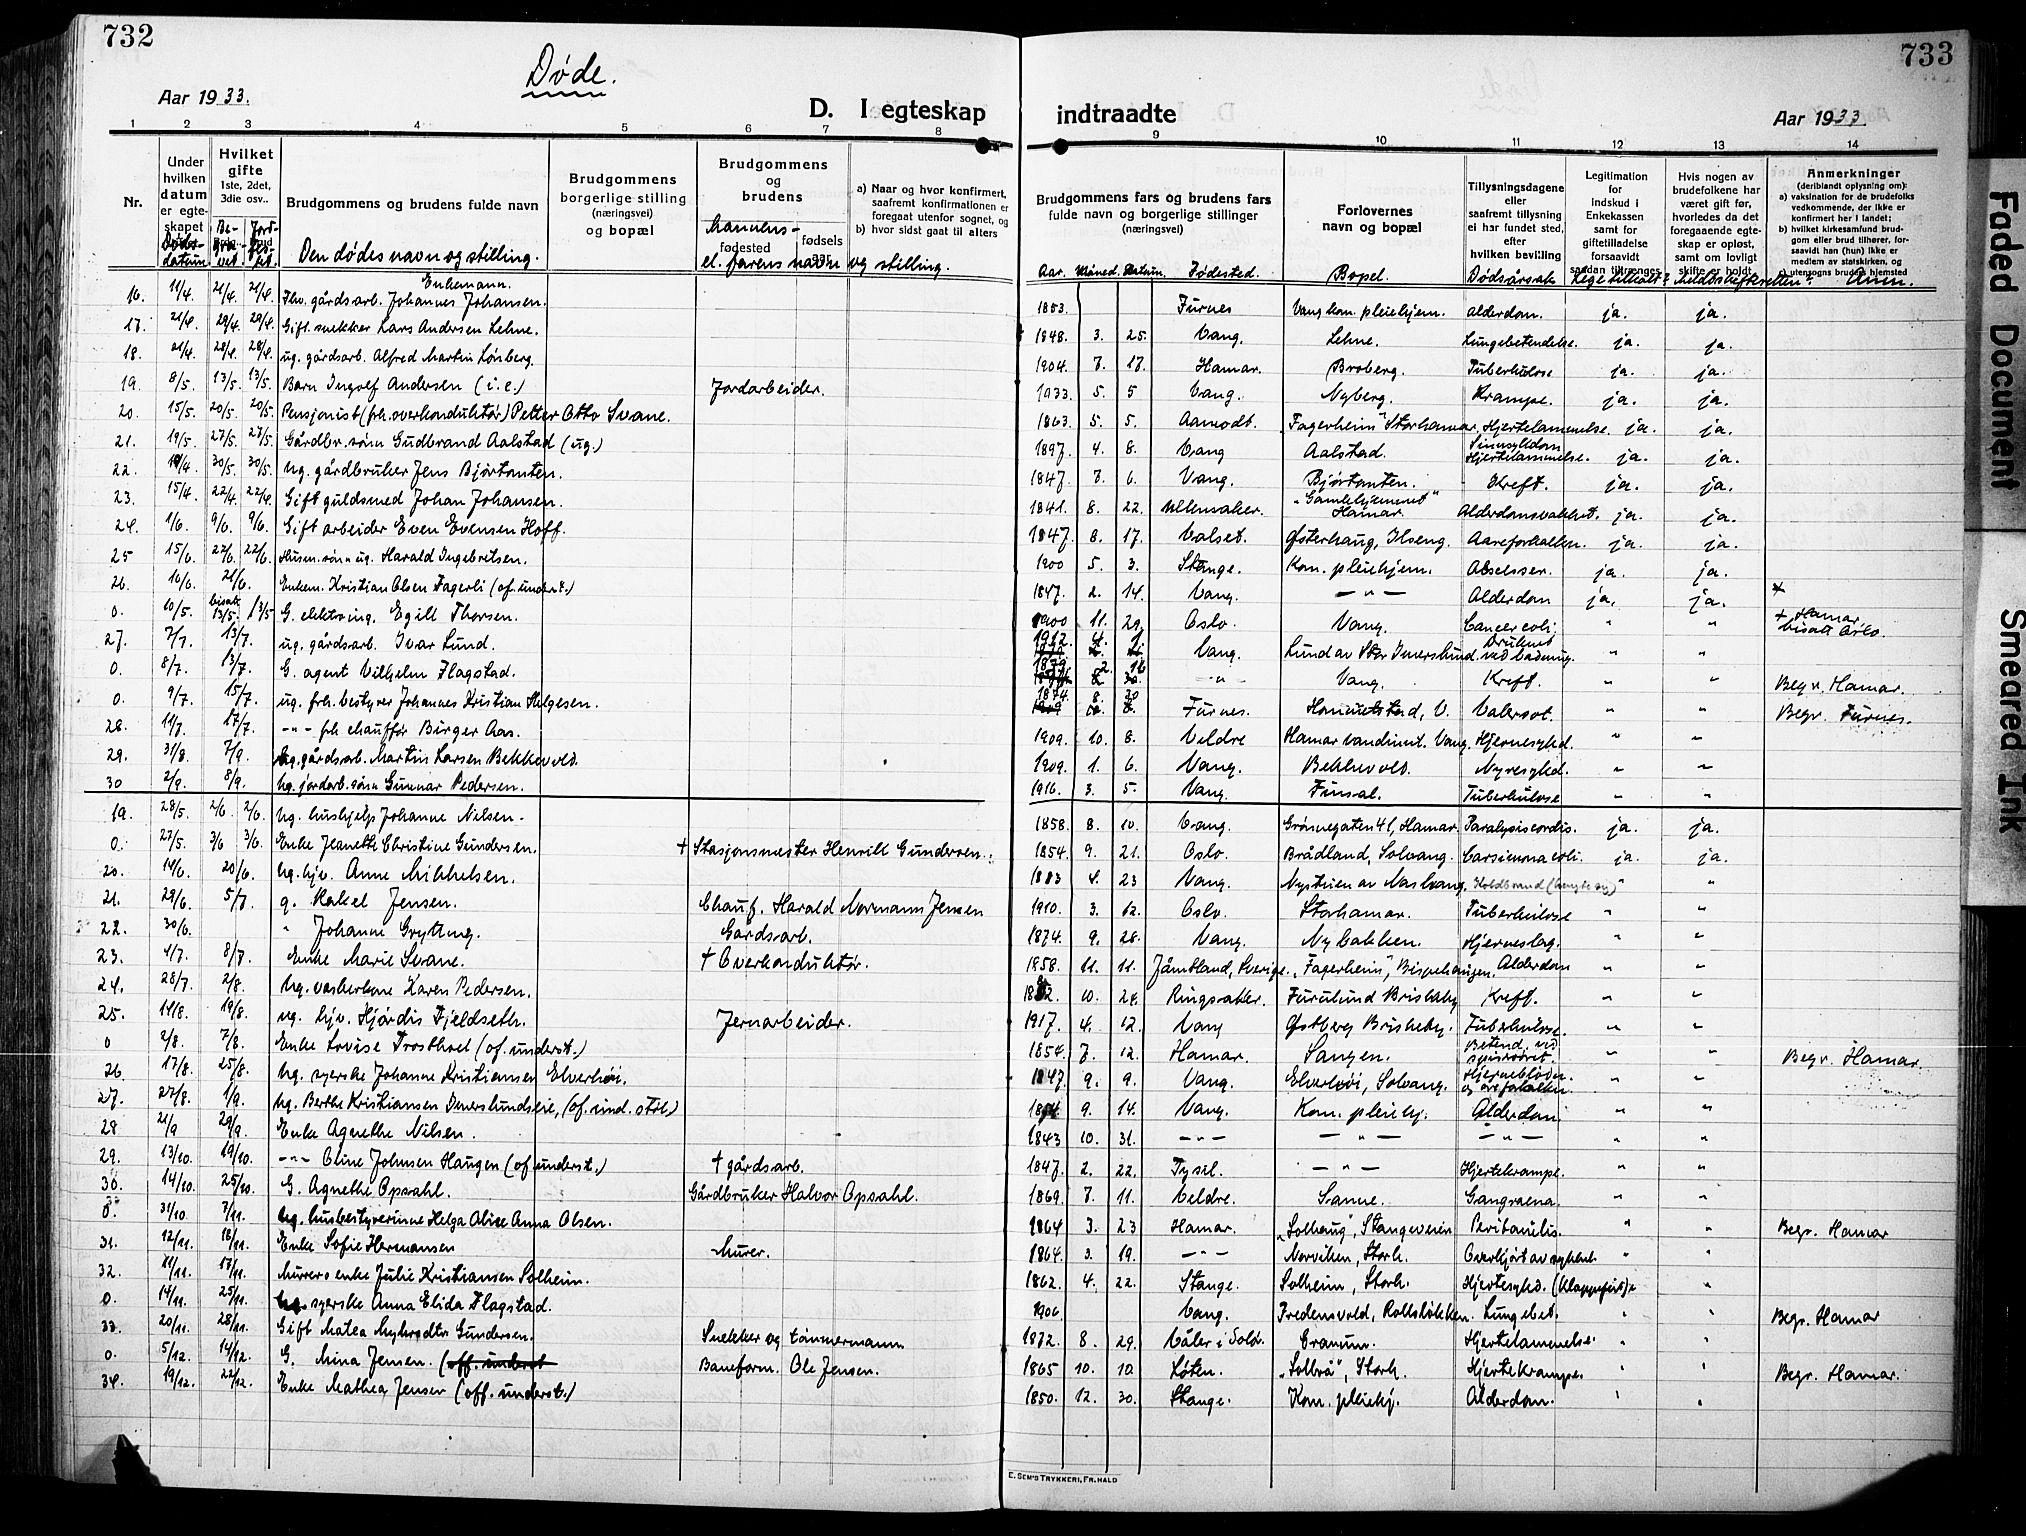 732
Døde.
Aar 1933.
D. I egteskap
1 2 3 4 5 6 7 8
Nr.
Under hvilken datum er egteskapet
Hvilket gifte 1ste, 2det, 3die osv..
Brudgommens og brudens fulde navn
Brudgommens borgerlige stilling (næringsvei) og bopæl
Brudgommens og brudens
fødested
fødsels
a) Naar og hvor konfirmert, saafremt konfirmationen er foregaat utenfor sognet, og
b) hvor sidst gaat til alters
Dødsdatum
Den dødes navn og stilling.
Mannens- el. farens navn og stilling.
16. 11/4. 21/4. 21/4. Fhv. gårdsarb. Johannes Johansen. Enkemann.
17. 21/4. 29/4. 29/4. Gift snekker Lars Andersen Lehne.
18. 21/4. 28/4. 28/4. ug. gårdsarb. Alfred Martin Lønberg.
19. 8/5. 13/5. 13/5. Barn Ingolf Andersen (i.e.) Jordarbeider.
20. 15/5. 20/5. 20/5. Pensjonist (frh. overkonduktør) Petter Otto Svane.
21. 19/5. 27/5. 27/5. Gårdbr. sønn Gudbrand Aalstad (ug.)
22. 30/5. 30/5. Ug. gårdbruker Jens Bjørtanten.
23. 15/4. 22/4. 22/4. Gift guldsmed Johan Johansen.
24. 1/6. 9/6. 9/6. Gift arbeider Even Evensen Hoff.
25 15/6. 22/6. 22/6. Husm. sønn ug. Harald Ingebretsen.
26. 16/6. 21/6. Enkem. Kristian Olsen Fagerli (of. underst.)
0. 10/5. bisatt 13/5. 13/5. G. elektroing. Egill Thorsen.
27. 7/7. 13/7. ug. gårdsarb. Ivar Lund.
0. 8/7. 13/7. G. agent Vilhelm Flagstad.
0. 9/7. 15/7. ug. frh. bestyrer Johannes Kristian Helgesen.
28. 11/7. 17/7. -"- frh chauffør Birger Aas.
29. 31/8. 7/9. Ug. gårdsarb. Martin Larsen Bekkevold.
30 2/9. 8/9. Ug. jordarb. sønn Gunnar Pedersen.
19. 28/5. 2/6. 2/6. Ug. hushjelp Johanne Nilsen.
0. 27/5. 3/6 3/6. Enke Jeanette Christine Gundersen. + Stasjonsmester Henrik Gundersen.
20. 14/6. 20/6. Ug. hjv. Anne Mikkelsen.
21. 29/6. 5/7. g. Rakel Jensen. Chauf. Harald Normann Jensen
22. 30/6. " Johanne Grytting. Gårdsarb.
23. 4/7. 8/7. Enke Marie Svane. + Overkonduktør.
24. 28/7. 2/8. Ug. vaskerkone Karen Pedersen.
25. 14/8. 19/8. ug. hjv. Hjørdis Fjeldseth. Jernarbeider.
0 2/8. 7/8. Enke Lovise Trosthoel (of. underst.)
26 17/8. 25/8. Ug. syerske Johanne Kristiansen Elverhøi.
27. 27/8. 1/9. Ug. Berthe Kristiansen Imerslundseie, (of. und. støt.)
28 21/9 29/9. Enke Agnethe Nilsen.
29. 13/10. 19/10. -"- Oline Johnsen Haugen (of. underst.) + gårdsarb.
30. 14/10. 25/10. G. Agnethe Opsahl. Gårdbruker Halvor Opsahl.
0. 31/10. 7/11. Ug. husbestyrerinne Helga Alise Anna Olsen.
31. 12/11. 18/11. Enke Sofie Hermansen Murer.
32. 11/11. 17/11. Murers enke Julie Kristiansen Solheim.
0. 14/11. 25/11. Ug. syerske Anna Elida Flagstad.
33. 20/11. 28/11. Gift Matea Myhrodtr Gundersen. Snekker og tømmermann
0. 5/12. 14/12. G. Mina Jensen. (off. underst Baneform. Ole Jensen.
34. 19/12. 22/12. Enke Mathea Jensen (off. underst.)
733
indtraadte
Aar 1933.
9 10 11 12 13 14
Brudgommens fars og brudens fars fulde navn og borgerlige stillinger (næringsvei)
Forlovernes navn og bopæl
Tillysningsdagene eller saafremt tillysning ei har fundet sted, efter hvilken bevilling
Legitimation for indskud i Enkekassen samt for giftetilladelse forsaavidt saadan tiltrænges
Hvis nogen av brudefolkene har været gift før, hvorledes da det foregaaende egteskap er opløst, samt om lovlig skifte er holdt
Anmerkninger (deriblandt oplysning om):
a) vaksination for de brudefolks vedkommende, der ikke er konfirmert her i landet;
b) hvilket kirkesamfund brudgom eller brud tilhører, forsaavidt han (hun) ikke er medlem av statskirken, og
c) utensogns bruders hjemsted
Aar. Måned. Datum. Fødested. Bopel. Dødsårsak Lege tilkalt? Meldt skifteretten? Anm.
1853. Furnes Vang kom. pleiehjem. Alderdom. ja. ja.
1848. 3. 25. Vang. Lehne. Lungebetendelse. ja. ja.
1904. 7. 17. Hamar. Broberg. Tuberkulose ja. ja.
1933. 5. 5 Vang. Nyberg. Krampe. ja. ja.
1863. 5. 5. Aamodt. "Fagerheim" Storhamar. Hjertelammelse. ja. ja.
1897. 4. 8. Vang Aalstad. Sinnsykdom Hjertelammelse. ja. ja.
1847. 7. 6. Vang. Bjørtanten. Kreft. ja. ja.
1841. 8. 22. Ullensaker. "Gamlehjemmet" Hamar. Alderdomssvakhet. ja. ja.
1847. 8. 17. Valset. Østerhaug, Ilseng. Aareforkalkn. ja. ja.
1900 5. 3. Stange. Kom. pleiehjem. Abscesser. ja. ja.
1847. 2. 14. Vang. -"- Alderdom ja. ja.
1900 11. 29. Oslo. Vang. Cancer coli. " " + Hamar, bisatt Oslo.
1912. 4. 1. Vang. Lund av Stor Imerslund. Druknet ved badning. " "
1879. 2. 16 -"- Vang. Kreft. " " Begr. Hamar.
1874. 8. 20 Furnes. Hommelstad, V. Valersot. " " Begr. Furnes.
1909. 10. 8. Veldre Hamar vandinnt. Vang. Hjernesykd. " "
1909. 1. 6. Vang. Bekkevold. Nyresykd. " "
1916. 3. 5. Vang. Finsal. Tuberkulose " "
1858. 8. 10. Vang. Grønnegaten 41, Hamar. Paralysis cordis. ja. ja.
1854. 9. 21. Oslo. Brådland, Solvang. Carsinoma coli. ja. ja.
1883 4. 23 Vang. Nystuen av Nashaug. Koldbrand " "
1910. 3. 12. Oslo. Storhamar. Tuberkulose " "
1874. 9. 28. Vang. Nybakken. Hjerneslag. " "
1858. 11. 11. Jämtland, Sverige. "Fagerheim", Bispehaugen. Alderdom " "
10. 24. Ringsaker. Furulund Briskeby Kreft. " "
1917. 4. 12. Vang Østberg Briskeby. Tuberkulose. " "
1854. 7. 12. Hamar. Sangen. Betend. ved spiserøret. " " Begr. Hamar.
1847. 9. 9. Vang. Elverhøi, Solvang. Hjerneblødn. og åreforkalkn. " "
9. 14. Vang. Kom. pleiehj. Alderdom " "
1843 10. 31. -"- -"- -"- " "
1847. 2. 22. Tysil. -"- Hjertekrampe. " "
1869. 7. 11. Veldre. Sanne. Gangraena. " "
1864 3. 23 Hamar. "Solhaug", Stangeveien Peritonitis. " " Begr. Hamar
1864. 3. 19. -"- Norviken, Storh. Overkjørt av sykkel. " "
1862. 4. 22. Stange. Solheim, Storh. Hjertesykd. (klappefeil) " "
1906 Vang. Fredensvold, Rollsløkken. Lungebet. " " Begr. Hamar
1872. 8. 29. Våler i Solør. Cranum. Hjertelammelse. " "
1865 10. 10. Løten. "Solbrå", Storh. Hjertekrampe. " " Begr. Hamar.
1850. 12. 30. Stange. Kom. pleiehj. Alderdom. " "
E. SEM'S TRYKKERI, FR.HALD
Faded Document
Smeared Ink